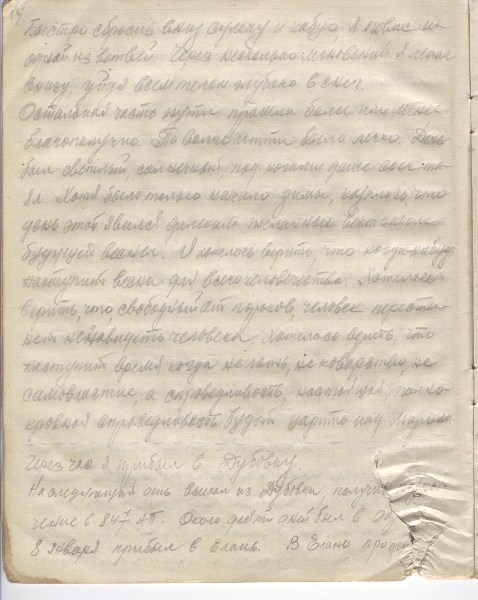 Быстро сбросив вниз сумку и кобуру я повис на
одной из ветвей. Через несколько мгновений я лежал
внизу, уйдя всем телом глубоко в снег.
Остальная часть пути прошла более или менее
благополучно. По Волге итти было легко. День
был светлый, солнечный, под ногами даже
Хотя было только начало зимы, казалось что
день этот явился далеким
будущей весны. И хотелось верить, что когда-нибудь
наступит весна для всего человечества. Хотелось
верить, что свободный от человек переста-
нет ненавидеть человека. Хотелось верить, что
наступит время когда не не коварство, не
самовластие, а справедливость, настоящая, полно-
кровная справедливость будет царить над миром.
Через час я прибыл в Дубовку.
На следующий день выехал из Дубовки, получив
в 847 АП. Около десяти дней был в
8 января прибыл в Елань. В Елани